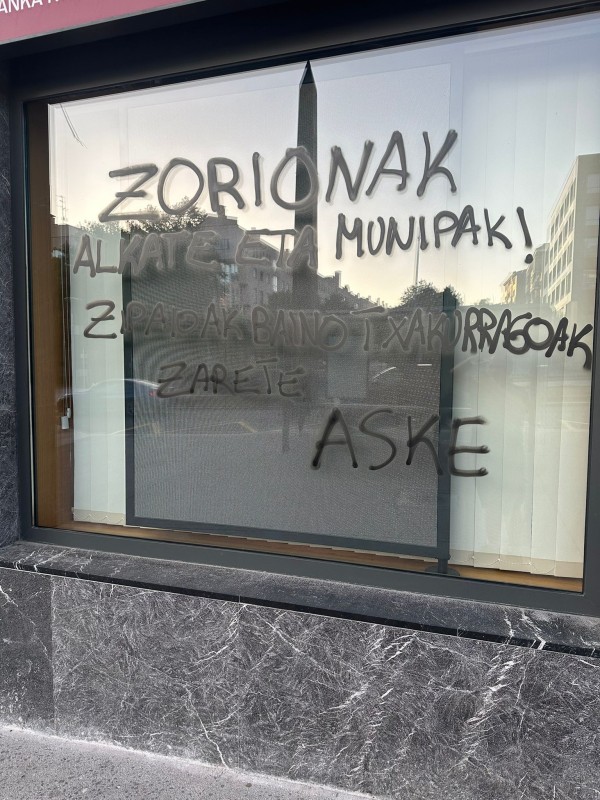 ZORIONAK
ALKATE ETA MUNIPAK!
ZIPAIOAK BAINO TXAKURRAGOAK
ZARETE
ASKE